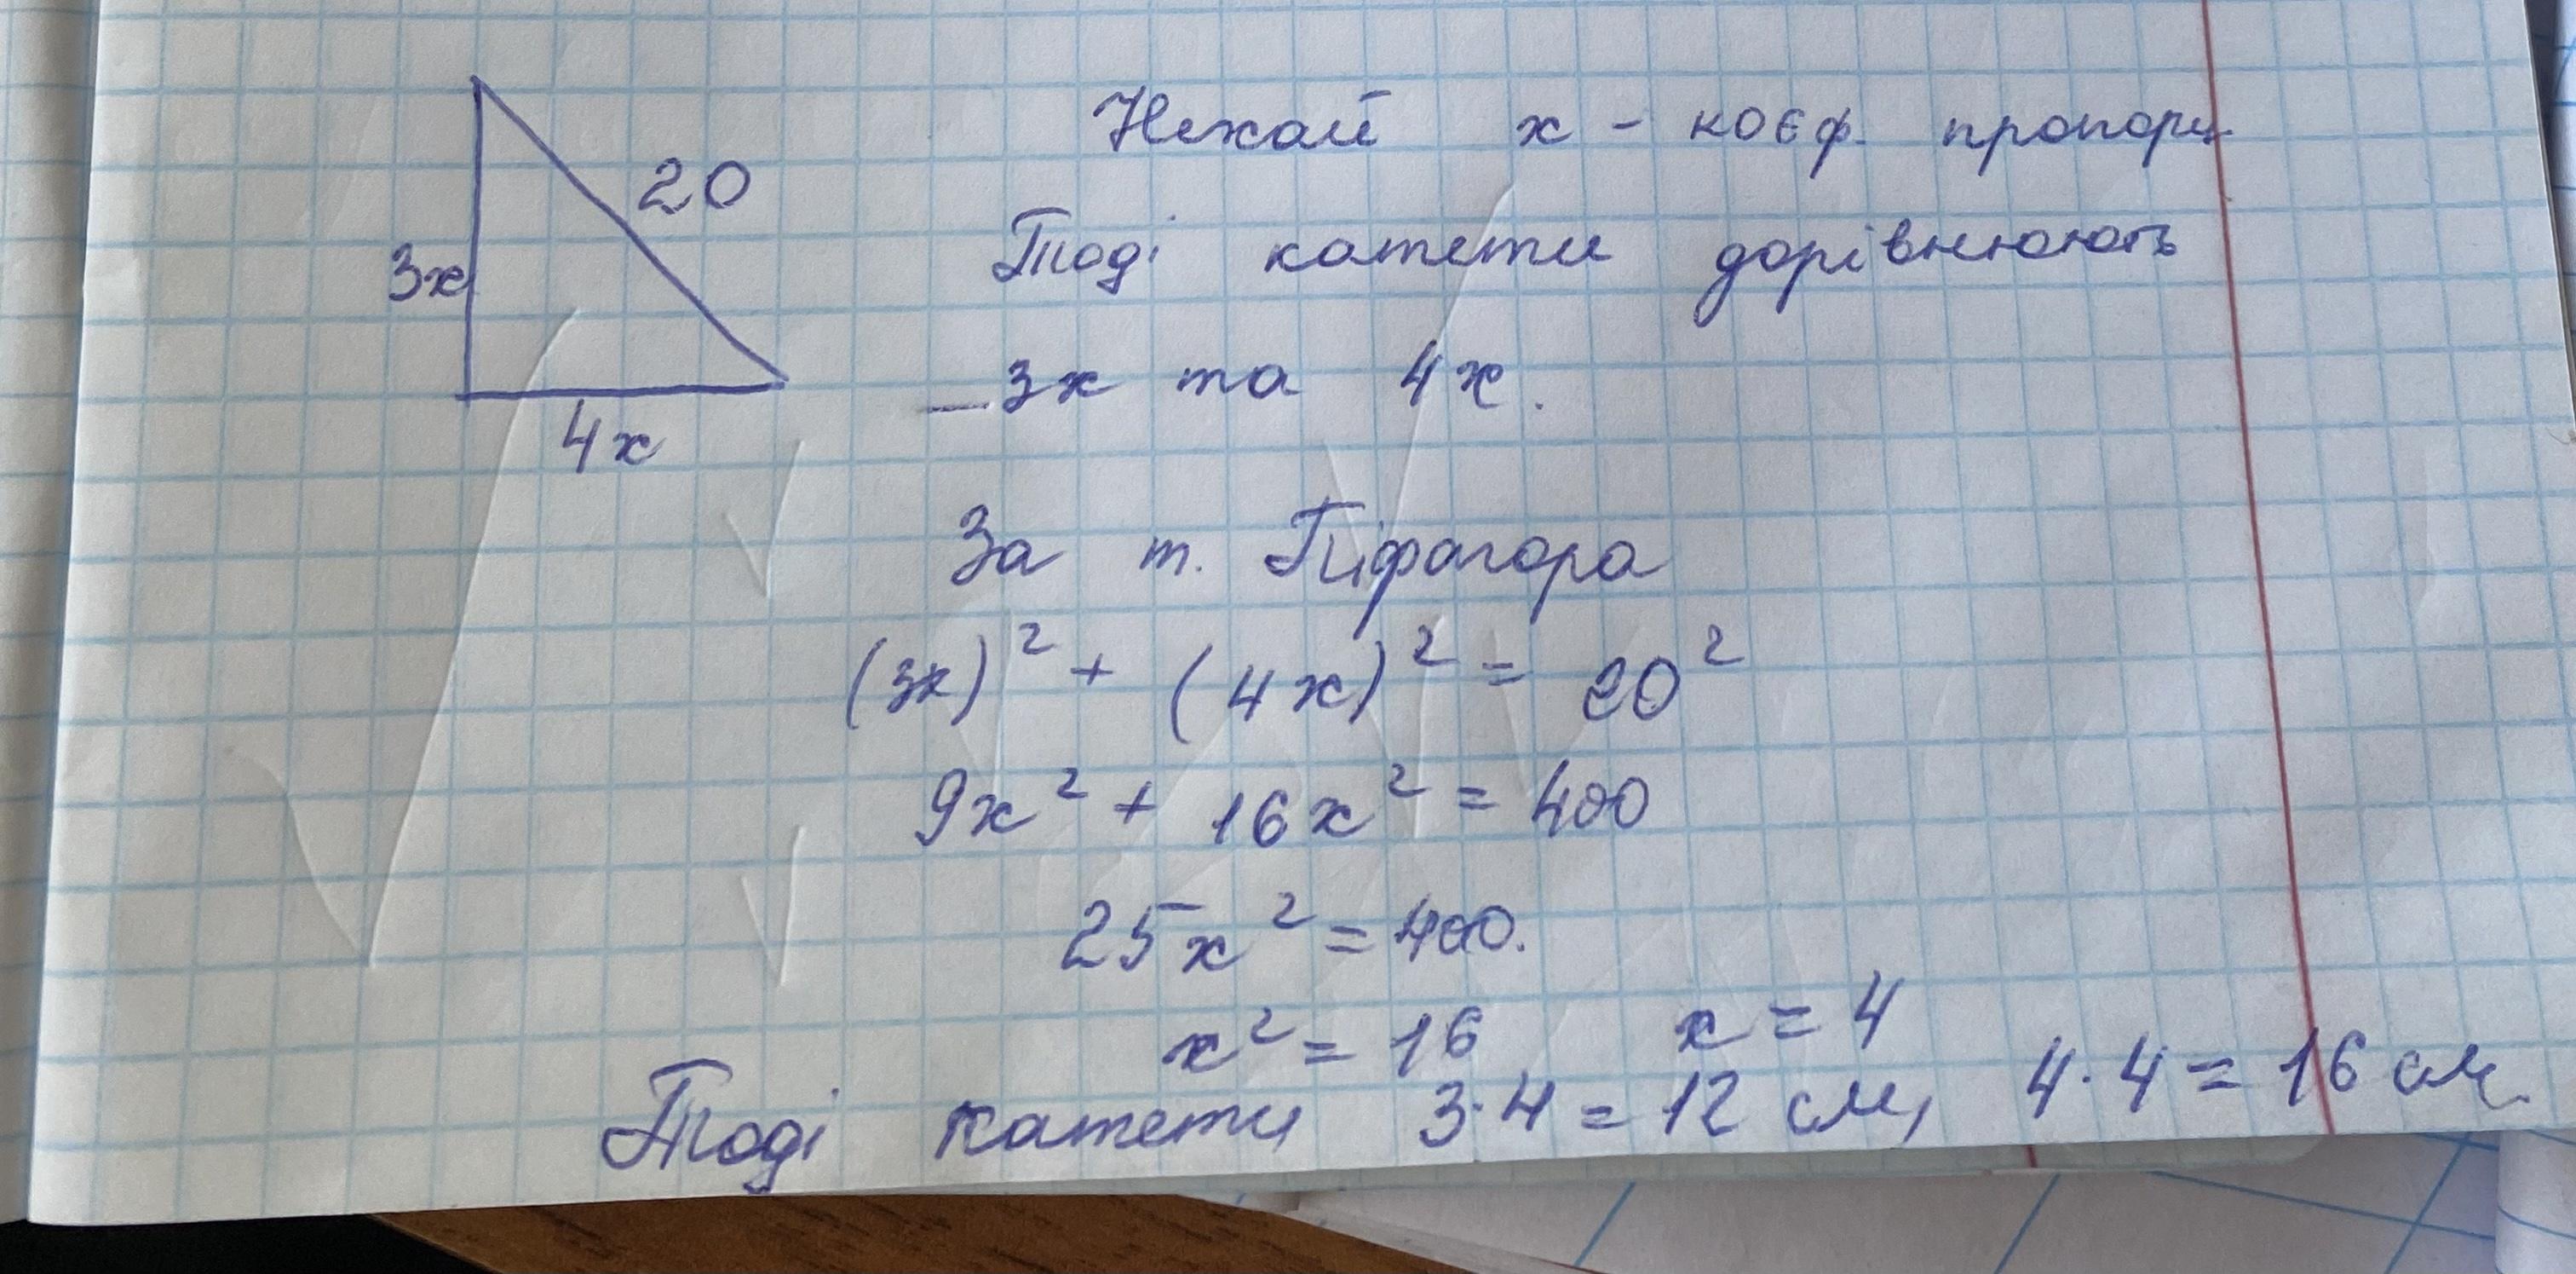 20
3x
4x
Нехай x - коеф. пропорц.
Тоді катети дорівнюють
3x та 4x.
За т. Піфагора
(3x)² + (4x)² = 20²
9x² + 16x² = 400
25x² = 400.
x² = 16 x = 4
Тоді катети 3·4 = 12 см, 4·4 = 16 см.